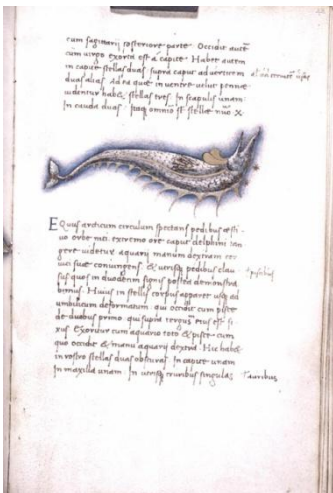 cum sagittarii posteriore parte. Occidit autē
cum virgo exorta est a capite. Habet autem
in capite stellas duas supra caput ad verticem
duas alias. Ad ea quae in ventre velut pennae
videntur habēt stellas tres. In scapulis unam.
In cauda duas. Itaq; omnīo sīt stellae nūo X.
EQuus arcticum circulum spectans pedibus
no orbe niti extremo ore caput delphini tan
gere videtur aquarii manum dextram cer
vici suae coniungens & utrisq; pedibus clau
sus quos in duodecim signis postea demonstra
bimus. Huius in stellis corpus apparet usq; ad
umbilicum deformatum. qui occidit cum pisce
de duobus primo qui supra tergum eius est fi
xus. Exoritur cum aquario toto & pisce cum
quo occidit & manu aquarii dextra. Hic habet
in rostro stellas duas obscuras. In capite unam
In maxilla unam. In utrisq; auribus singulas
piscibus
auribus